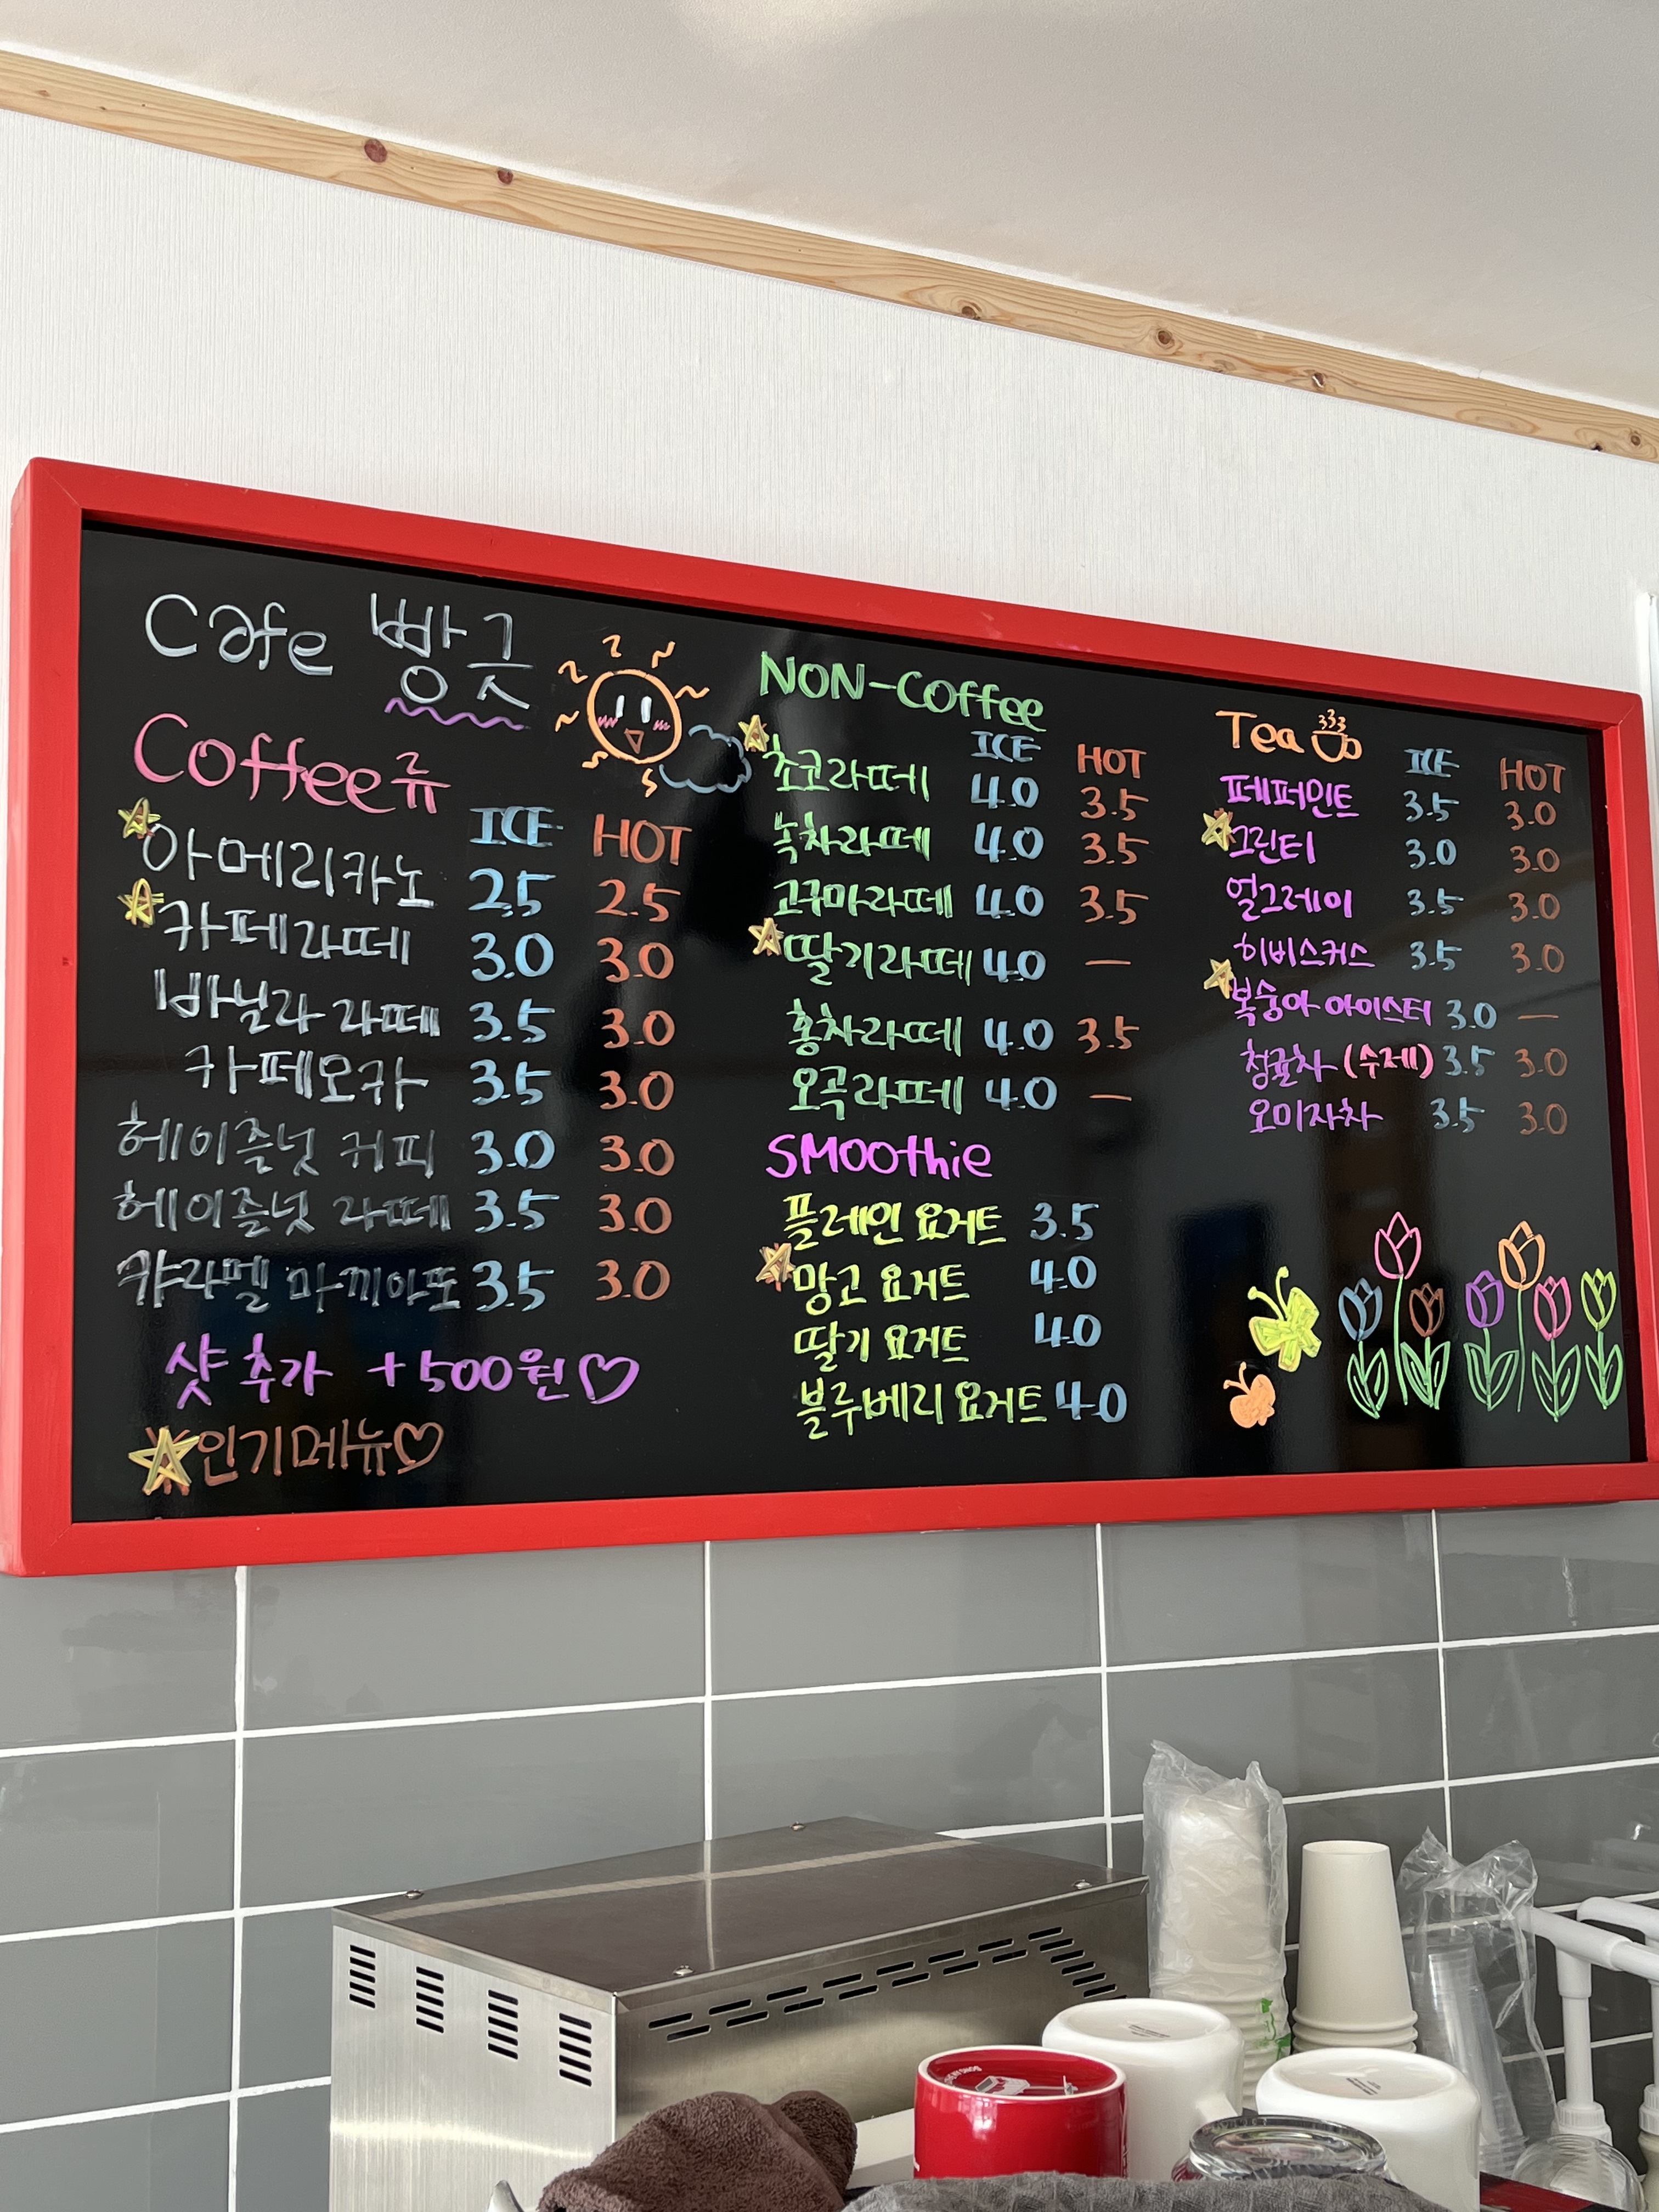 Cafe 빵굿
Coffee류
ICE HOT
아메리카노 2.5 2.5
카페라떼 3.0 3.0
바닐라 라떼 3.5 3.0
카페모카 3.5 3.0
헤이즐넛 커피 3.0 3.0
헤이즐넛 라떼 3.5 3.0
캬라멜 마끼아또 3.5 3.0
샷 추가 +500원♡
☆인기메뉴♡
NON-Coffee
ICE HOT
초코라떼 4.0 3.5
녹차라떼 4.0 3.5
고구마라떼 4.0 3.5
딸기라떼 4.0 —
홍차라떼 4.0 3.5
오곡라떼 4.0 —
SMOOthie
플레인 요거트 3.5
망고 요거트 4.0
딸기 요거트 4.0
블루베리 요거트 4.0
Tea
ICE HOT
페퍼민트 3.5 3.0
그린티 3.0 3.0
얼그레이 3.5 3.0
히비스커스 3.5 3.0
복숭아 아이스티 3.0 —
청귤차 (수제) 3.5 3.0
오미자차 3.5 3.0